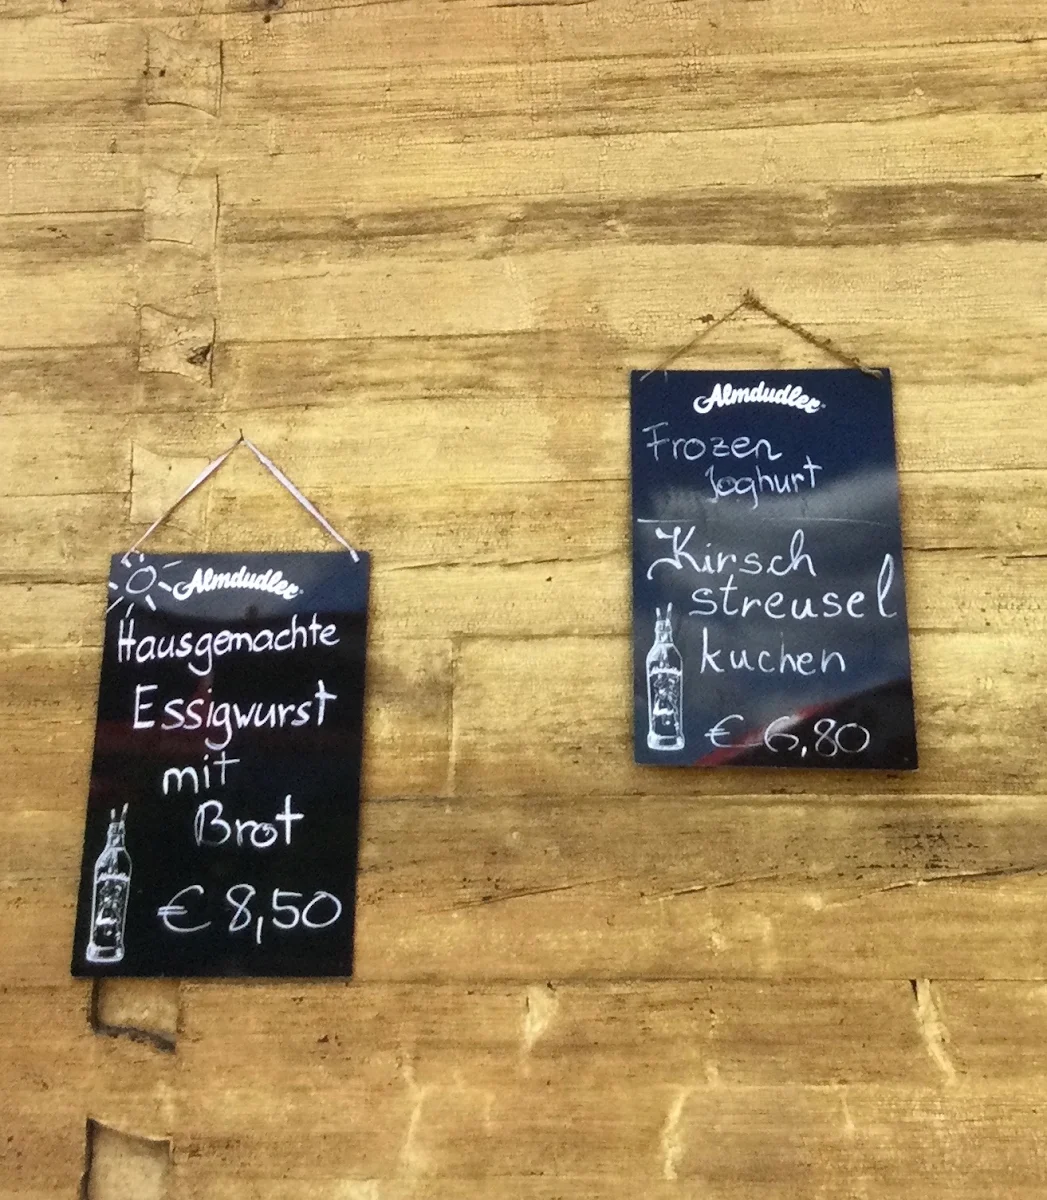 Almdudler
Hausgemachte
Essigwurst
mit
Brot
€ 8,50
Almdudler
Frozen
Joghurt
Kirsch
streusel
kuchen
€ 6,80